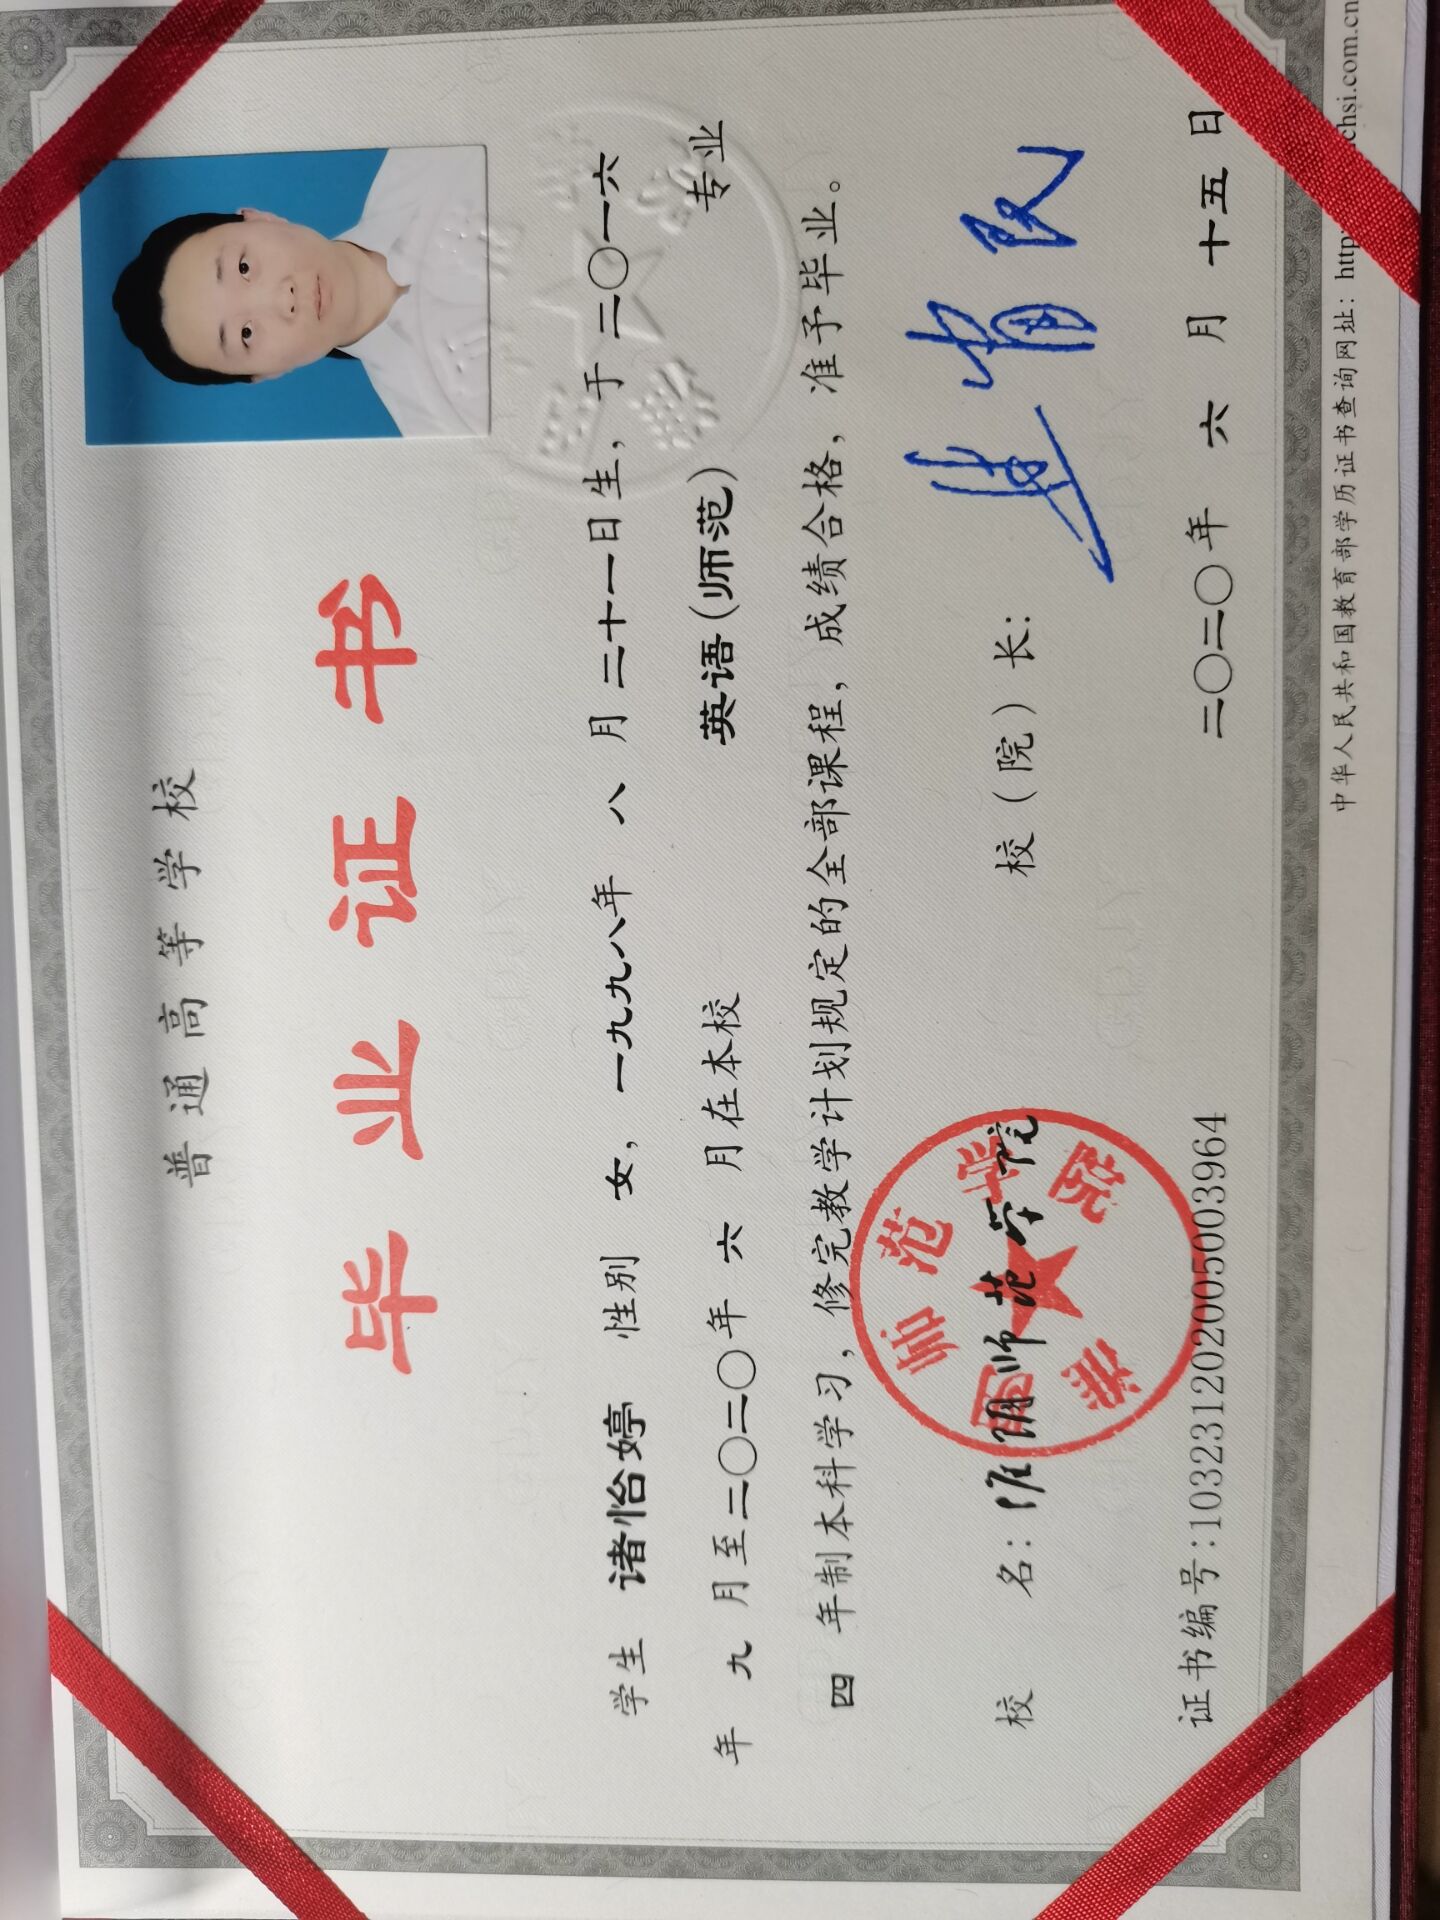 普通高等学校
毕业证书
学生 诸怡婷 性别 女，一九九八年 八 月 二十一日生，于二〇一六
年 九 月至二〇二〇年 六 月在本校 英语(师范) 专业
四 年制本科学习，修完教学计划规定的全部课程，成绩合格，准予毕业。
校 名：淮阴师范学院 校（院）长：
淮阴师范学院
证书编号:103231202005003964 二〇二〇年 六 月 十五 日
中华人民共和国教育部学历证书查询网址：http chsi.com.cn